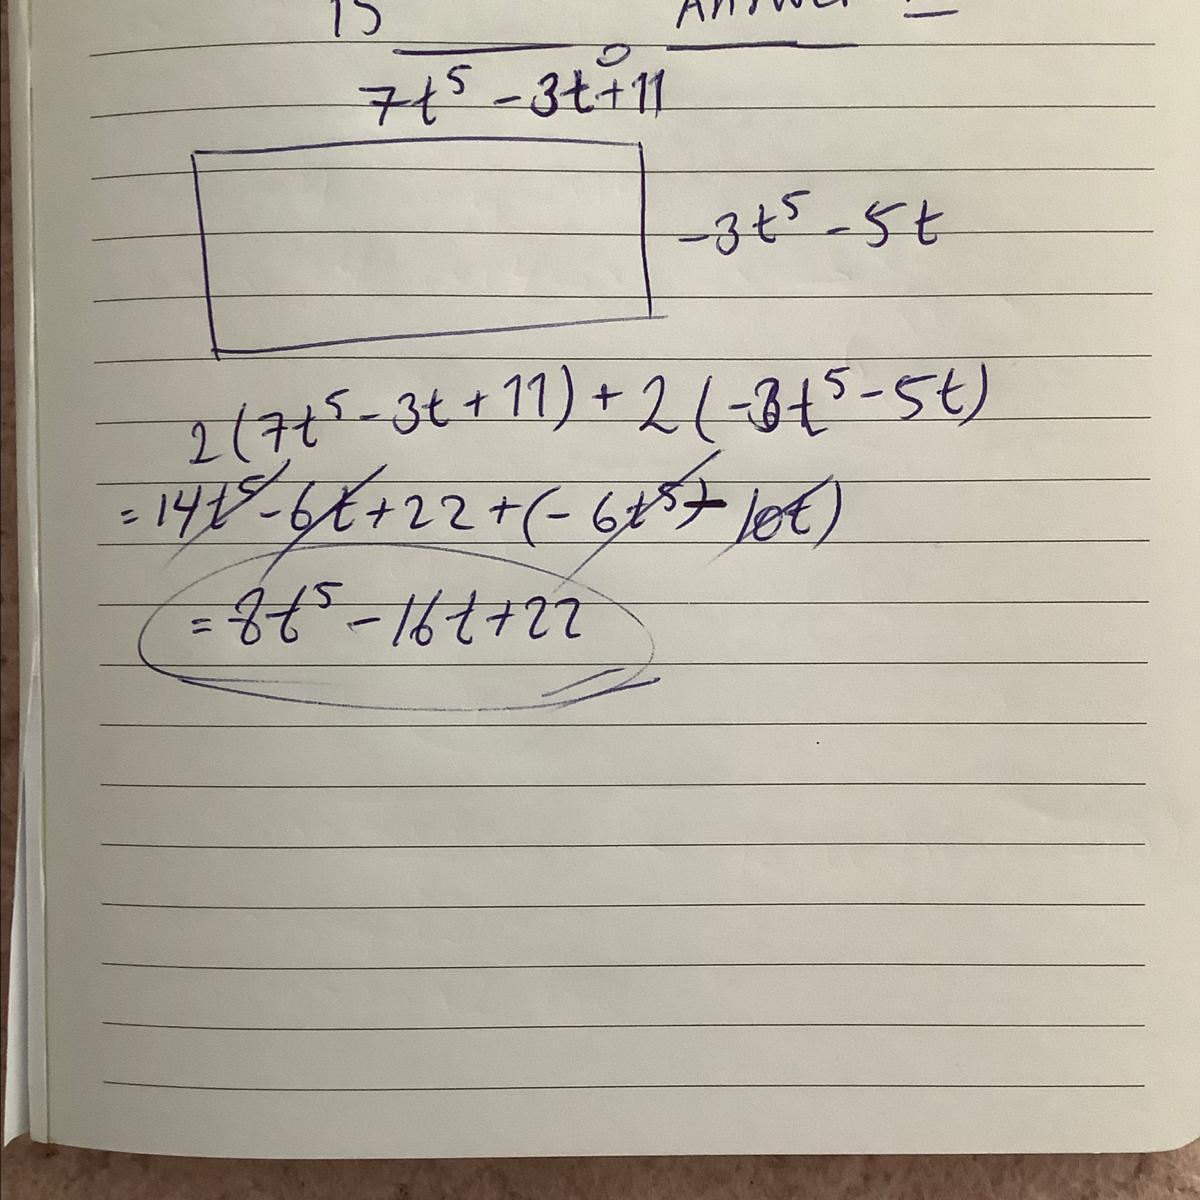 7t⁵ - 3t + 11
-3t⁵ - 5t
2(7t⁵ - 3t + 11) + 2(-3t⁵ - 5t)
= 14t⁵ - 6t + 22 + (- 6t⁵ - 10t)
= 8t⁵ - 16t + 22